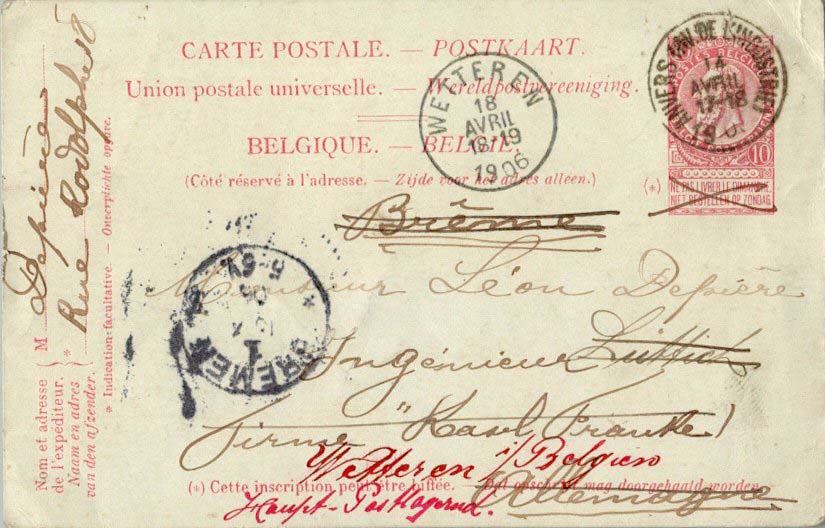 CARTE POSTALE. — POSTKAART.
Union postale universelle. — Wereldpostvereeniging.
BELGIQUE. — BELGIË.
(Côté réservé à l'adresse. — Zijde voor het adres alleen.)
WETTEREN
18
AVRIL
18-19
1906
ANVERS
14
AVRIL
17-18
POSTES
10
(*)
NE PAS LIVRER LE DIMANCHE
NIET BESTELLEN OP ZONDAG
Brême
Monsieur Léon Depière
Ingénieur Lüttich
Firme "Karl Francke"
Wetteren i/Belgien
Allemagne
(*) Cette inscription peut être biffée. — Dit opschrift mag doorgehaald worden.
Haupt-Postlagernd.
BREMEN
1
5-6V.
*
Nom et adresse
de l'expéditeur.
Naam en adres
van den afzender.
M Depière
Rue Rodolphe 18
*
* Indication facultative. — Onverplichte opgave.